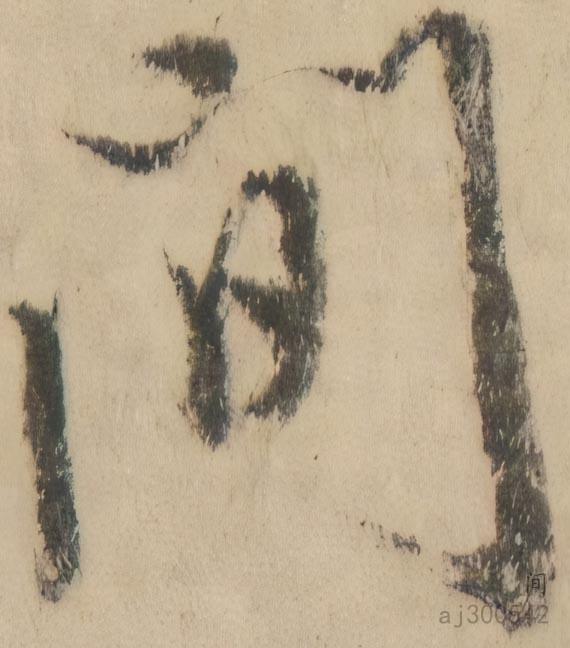 间
间
aj300542